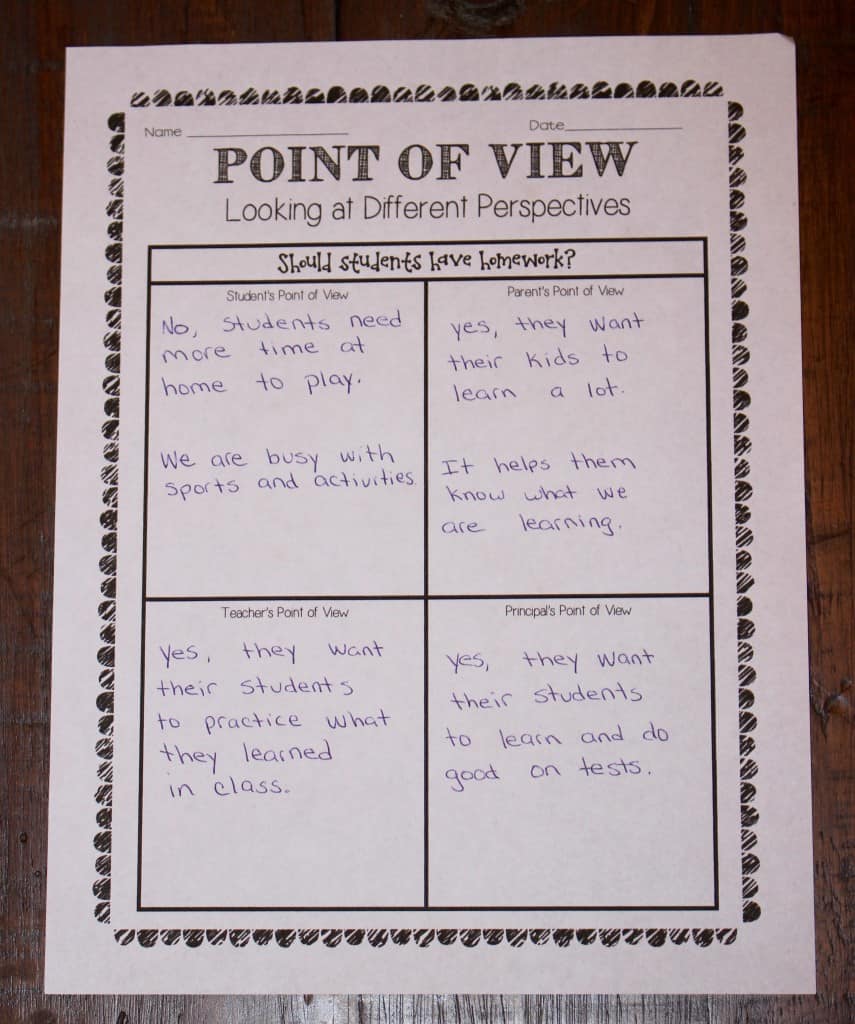 Name ____________________ Date____________________
POINT OF VIEW
Looking at Different Perspectives
Should students have homework?
Student's Point of View
No, students need
more time at
home to play.
We are busy with
sports and activities.
Parent's Point of View
yes, they want
their kids to
learn a lot.
It helps them
know what we
are learning.
Teacher's Point of View
yes, they want
their students
to practice what
they learned
in class.
Principal's Point of View
yes, they want
their students
to learn and do
good on tests.